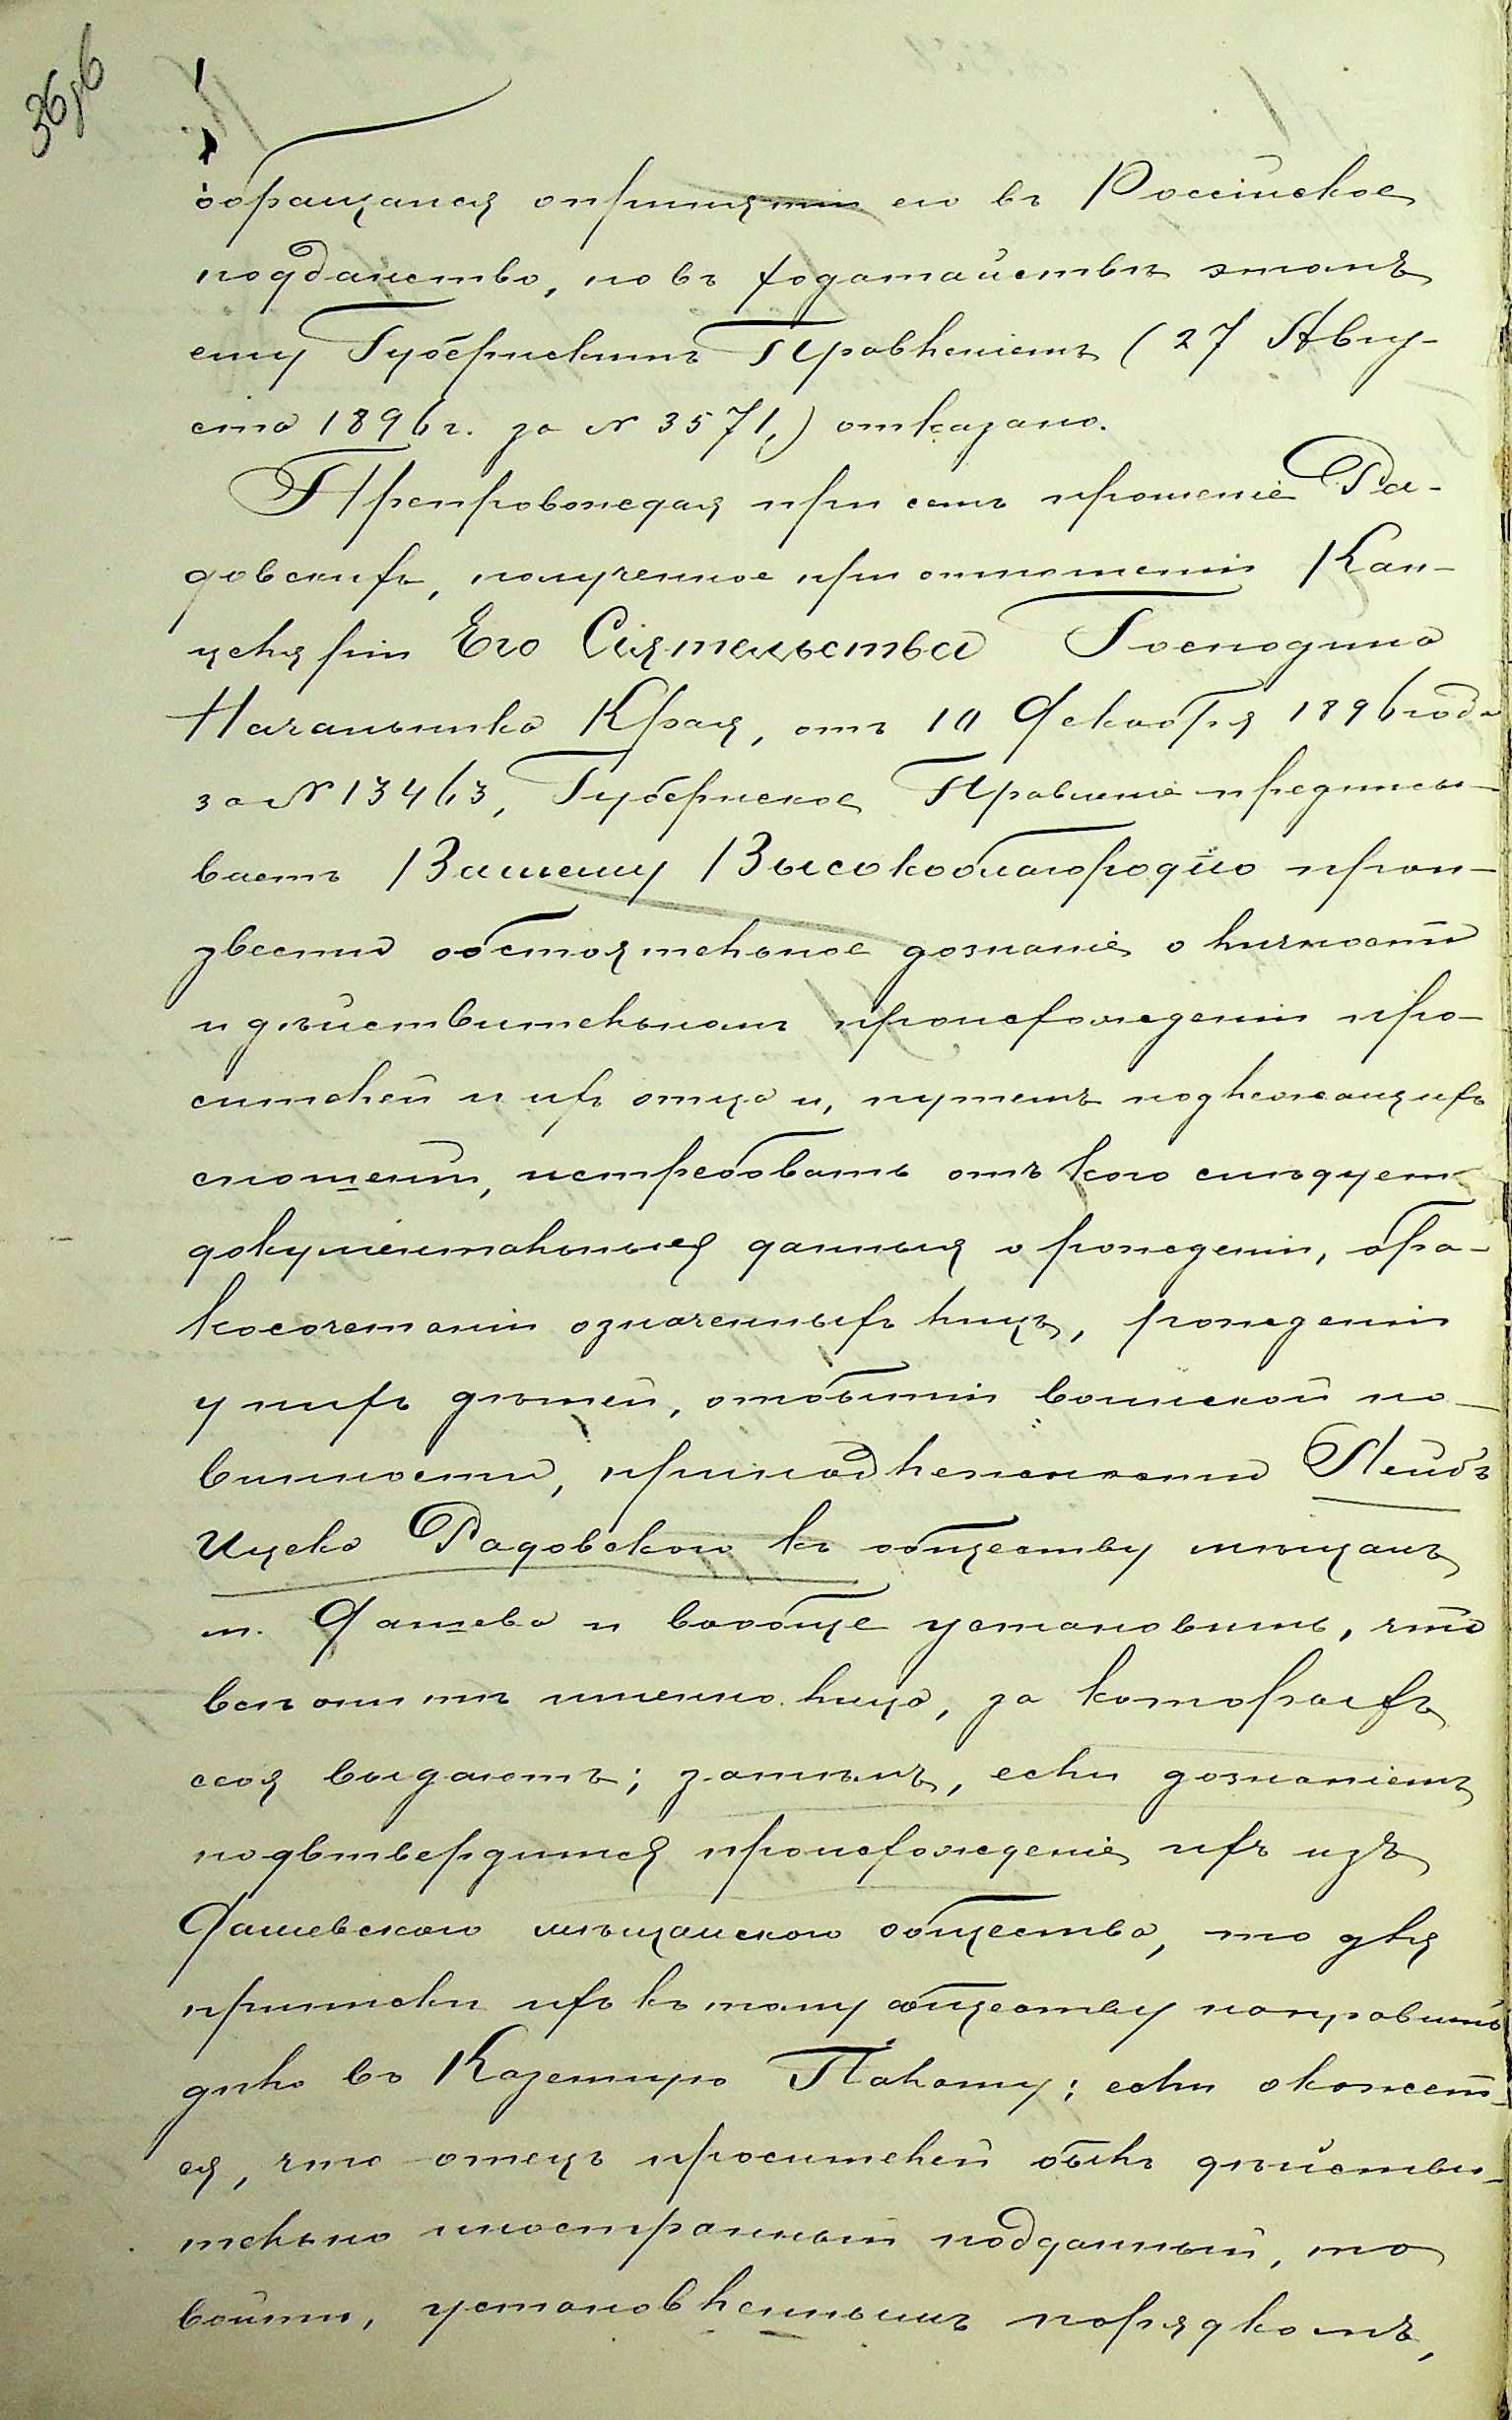 36об
обращался о принятіи его въ Россійское
подданство, но въ ходатайствѣ этомъ
ему Губернскимъ Правленіемъ (27 Авгу-
ста 1896 г. за № 3571,) отказано.
Препровождая при семъ прошеніе Ра-
довскихъ, полученное при отношеніи Кан-
целяріи Его Сіятельства Господина
Начальника Края, отъ 10 Декабря 1896 года
за № 13463, Губернское Правленіе предписы-
ваетъ Вашему Высокоблагородію прои-
звести обстоятельное дознаніе о личности
и дѣйствительномъ происхожденіи про-
сителей и ихъ отца и, путемъ подлежащихъ
сношеній, истребовать отъ кого слѣдуетъ
документальныя данныя о рожденіи, бра-
косочетаніи означенныхъ лицъ, рожденіи
у нихъ дѣтей, отбытіи воинской по-
винности, принадлежности Лейбъ
Ицека Радовскаго къ обществу мѣщанъ
м. Дашева и вообще установить, что
всѣ они тѣ именно лица, за которыхъ
себя выдаютъ; затѣмъ, если дознаніемъ
подвтвердится происхожденіе ихъ изъ
Дашевскаго мѣщанскаго общества, то для
приписки ихъ къ тому обществу направить
дѣло въ Казенную Палату; если окажет-
ся, что отецъ просителей былъ дѣйстви-
тельно иностранный подданный, то
войти, установленнымъ порядкомъ,